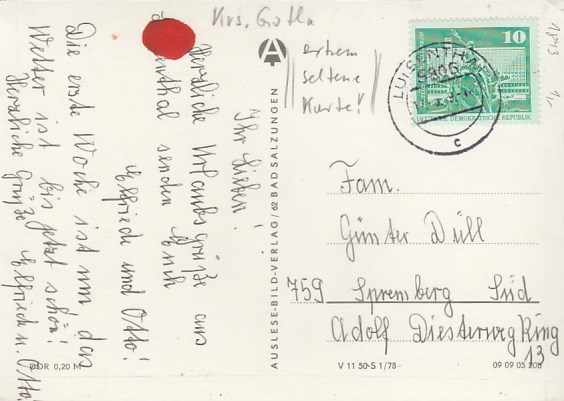 Krs. Gotha
extrem
seltene
Karte!
Ihr Lieben!
Herzliche Urlaubsgrüße aus
senden Euch
Elfriede und Otto!
Die erste Woche ist um das
Wetter ist bis jetzt schön!
Herzliche Grüße Elfriede u. Otto.
DDR 0,20 M
AUSLESE-BILD-VERLAG / 62 BAD SALZUNGEN
A
LUISENTHAL
c
10
DEMOKRATISCHE REPUBLIK
Fam.
Günter Düll
759 Spremberg Süd
Adolf Diesterweg Ring
13
V 11 50-S 1/78
09 09 05 208